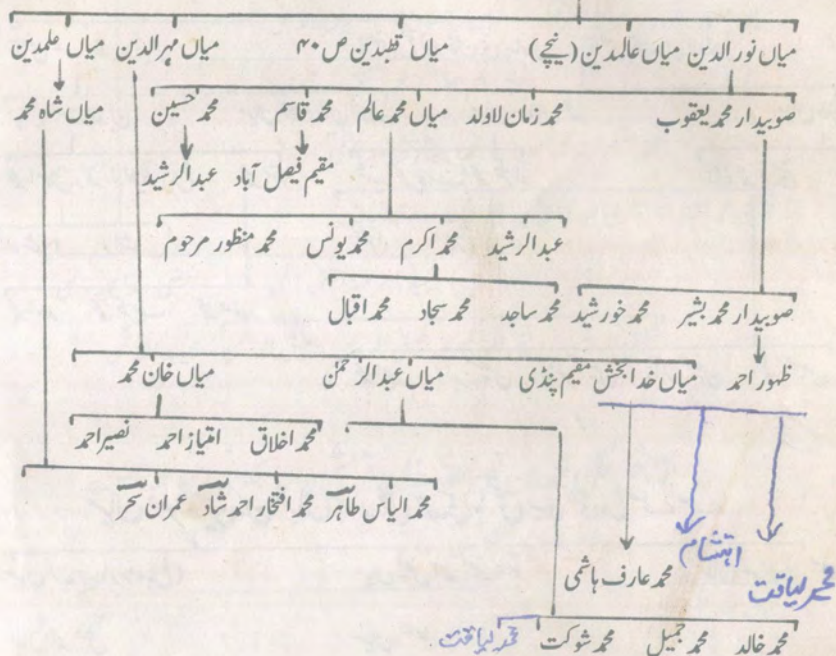 میاں نور الدین میاں عالمدین (نیچے) میاں قطبدین ص ۴۰ میاں مہر الدین میاں علمدین
صوبیدار محمد یعقوب محمد زمان لاولد میاں محمد عالم محمد قاسم محمد حسین میاں شاہ محمد
مقیم فیصل آباد عبد الرشید
عبد الرشید محمد اکرم محمد یونس محمد منظور مرحوم
صوبیدار محمد بشیر محمد خورشید محمد ساجد محمد سجاد محمد اقبال
ظہور احمد میاں خدا بخش مقیم پنڈی میاں عبد الرحمٰن میاں خان محمد
محمد اخلاق امتیاز احمد نصیر احمد
محمد الیاس طاہر محمد افتخار احمد شاد عمران سحر
محمد عارف ہاشمی اہتشام محمد لیاقت
محمد خالد محمد جمیل محمد شوکت محمد لیاقت